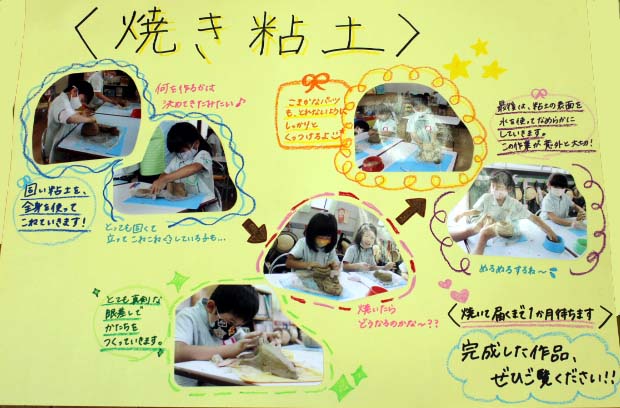 〈焼き粘土〉
何を作るかは
決めてきたみたい♪
固い粘土を、
全身を使って
こねていきます!
とっても固くて
立ってこねこねしている子も…
とても真剣な
眼差しで
かたちを
つくっていきます。
焼いたら
どうなるのかな〜??
こまかなパーツ
も、とれないように
しっかりと
くっつけるよ
最後は、粘土の表面を
水を使ってなめらかに
していきます。
この作業が意外と大切!
ぬるぬるするね〜
〈焼いて届くまで1か月待ちます〉
完成した作品、
ぜひご覧ください!!